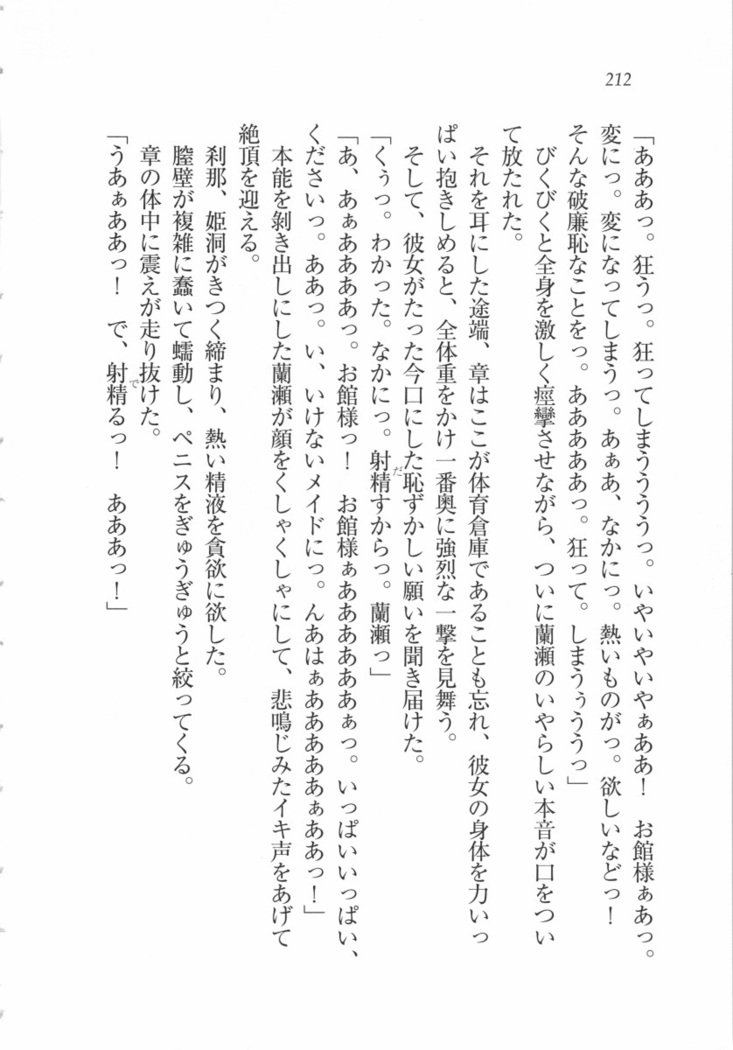 212
「あああっ。狂うっ。狂ってしまうううっ。いやいやいやぁああ！　お館様ぁあっ。
変にっ。変になってしまうっ。あぁあ、なかにっ。熱いものがっ。欲しいなどっ！
そんな破廉恥なことをっ。ああああああっ。狂って。しまうぅううっ」
びくびくと全身を激しく痙攣させながら、ついに蘭瀬のいやらしい本音が口をつい
て放たれた。
それを耳にした途端、章はここが体育倉庫であることも忘れ、彼女の身体を力いっ
ぱい抱きしめると、全体重をかけ一番奥に強烈な一撃を見舞う。
そして、彼女がたった今口にした恥ずかしい願いを聞き届けた。
「くぅっ。わかった。なかにっ。射精すからっ。蘭瀬っ」
「あ、あぁああああっ。お館様っ！　お館様ぁあああああああぁっ。いっぱいいっぱい、
くださいっ。ああっ。い、いけないメイドにっ。んあはぁあああああぁああっ！」
本能を剥き出しにした蘭瀬が顔をくしゃくしゃにして、悲鳴じみたイキ声をあげて
絶頂を迎える。
刹那、姫洞がきつく締まり、熱い精液を貪欲に欲した。
膣壁が複雑に蠢いて蠕動し、ペニスをぎゅうぎゅうと絞ってくる。
章の体中に震えが走り抜けた。
「うあぁああっ！　で、射精るっ！　あああっ！」